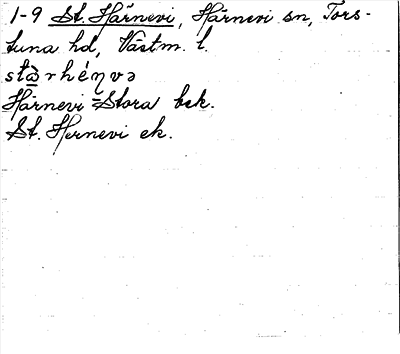 1-9 St. Härnevi, Härnevi sn, Tors-
tuna hd, Västm. l.
Härnevi = Stora bsk.
St. Hernevi ek.